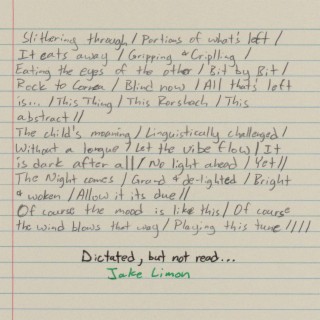 Slithering through / Portions of what's left /
It eats away / Gripping & Criplling /
Eating the eyes of the other / Bit by Bit /
Rock to Cornea / Blind now / All that's left
is... / This Thing / This Rorshach / This
abstract //
The child's meaning / Linguistically challenged /
Without a tongue / Let the vibe flow / It
is dark after all / No light ahead / Yet //
The Night comes / Grand & de-lighted / Bright
& woken / Allow it its due //
Of course the mood is like this / Of course
the wind blows that way / Playing this tune ////
Dictated, but not read...
Jake Limon